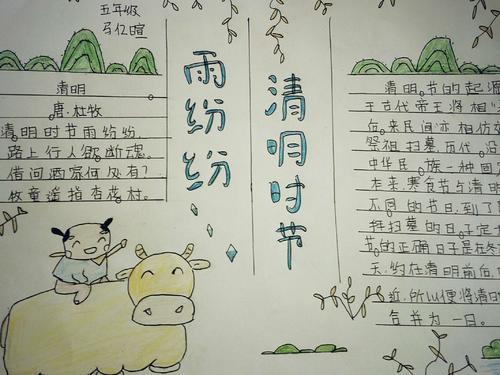 五年级
马亿暄
清明
唐.杜牧
清明时节雨纷纷,
路上行人欲断魂。
借问酒家何处有?
牧童遥指杏花村。
雨纷纷
清明时节
清明节的起源
于古代帝王将相
后来民间亦相仿
祭祖扫墓,历代沿
中华民族一种固
本来,寒食节与清明
不同的节日,到了
拜扫墓的日子定
节的正确日子是在冬
天,约在清明前后
近,所以便将清明
合并为一日。